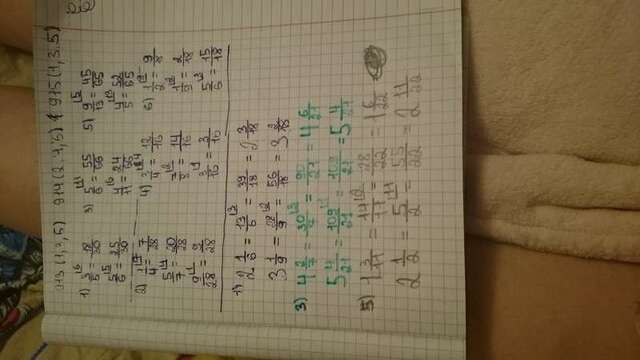 913 (1,3,5) 914 (2,4,6) 915 (1,3,5)
1) 3/5 = 18/30 3) 5/6 = 55/66 5) 9/13 = 45/65
5/6 = 25/30 4/11 = 24/66 4/5 = 52/65
2) 1/4 = 7/28 4) 3/4 = 12/16 6) 1/2 = 9/
5/7 = 20/28 7/8 = 14/16 1/9 = 2/18
9/28 = 9/28 3/16 = 3/16 5/6 = 15/18
2 1/6 = 13/6 = 39/18 = 2 3/18
3 1/9 = 28/9 = 56/18 = 3 2/18
3) 4 2/7 = 30/7 = 90/21 = 4 6/21
5 4/21 = 109/21 = 109/21 = 5 4/21
5) 1 3/11 = 14/11 = 28/22 = 1 6/22
2 1/2 = 5/2 = 55/22 = 2 11/22